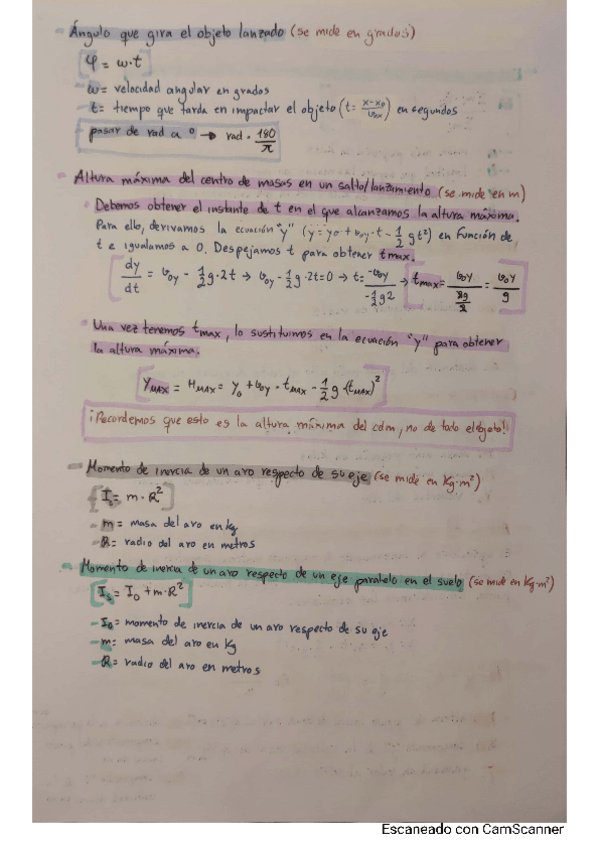 - Ángulo que gira el objeto lanzado (se mide en grados)
[φ = w·t]
- w = velocidad angular en grados
- t = tiempo que tarda en impactar el objeto (t = (x-x₀)/v₀ₓ) en segundos
pasar de rad a º → rad · 180/π
- Altura máxima del centro de masas en un salto/lanzamiento (se mide en m)
• Debemos obtener el instante de t en el que alcanzamos la altura máxima.
Para ello, derivamos la ecuación "y" (y = y₀ + v₀y · t - 1/2 gt²) en función de
t e igualamos a 0. Despejamos t para obtener tmax.
[dy/dt = v₀y - 1/2 g·2t → v₀y - 1/2 g·2t = 0 → t = -v₀y / -1/2 g2 → tmax = v₀y / (2g/2) = v₀y / g]
• Una vez tenemos tmax, lo sustituimos en la ecuación "y" para obtener
la altura máxima.
[YMAX = HMAX = y₀ + v₀y · tMAX - 1/2 g · (tMAX)²]
¡Recordemos que esto es la altura máxima del cdm, no de todo el objeto!
- Momento de inercia de un aro respecto de su eje (se mide en Kg·m²)
[I = m·R²]
- m = masa del aro en kg
- R = radio del aro en metros
- Momento de inercia de un aro respecto de un eje paralelo en el suelo (se mide en Kg·m²)
[Is = I₀ + m·R²]
- I₀ = momento de inercia de un aro respecto de su eje
- m = masa del aro en Kg
- R = radio del aro en metros
Escaneado con CamScanner